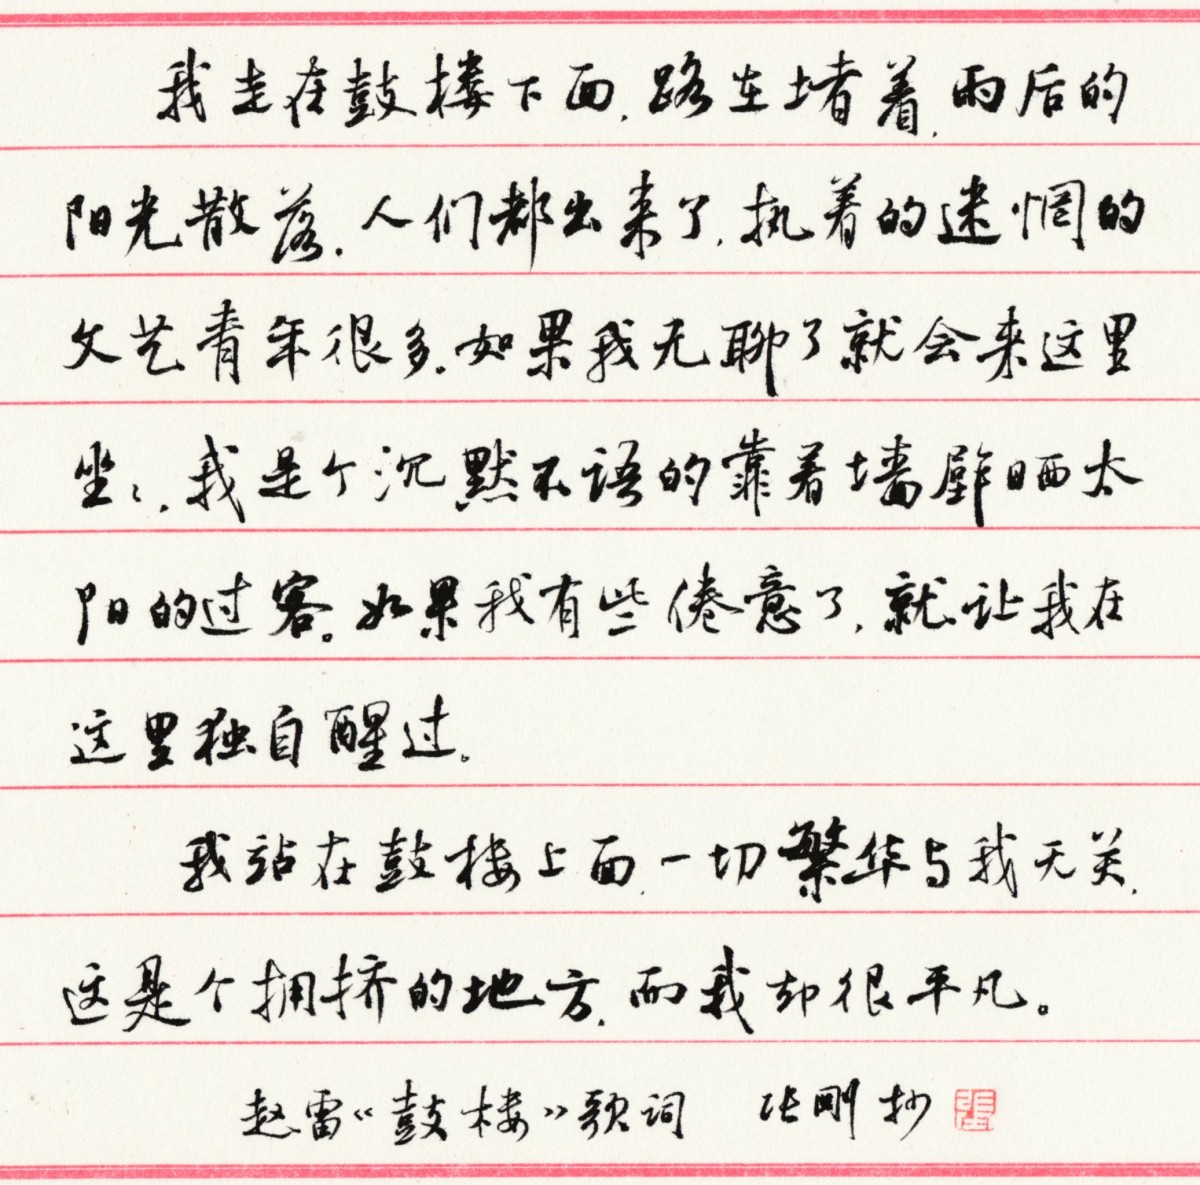 我走在鼓楼下面,路在堵着,雨后的
阳光散落,人们都出来了,执着的迷惘的
文艺青年很多,如果我无聊了就会来这里
坐坐,我是个沉默不语的靠着墙壁晒太
阳的过客。如果我有些倦意了,就让我在
这里独自醒过。
我站在鼓楼上面,一切繁华与我无关,
这是个拥挤的地方,而我却很平凡。
赵雷《鼓楼》歌词 张刚抄
張